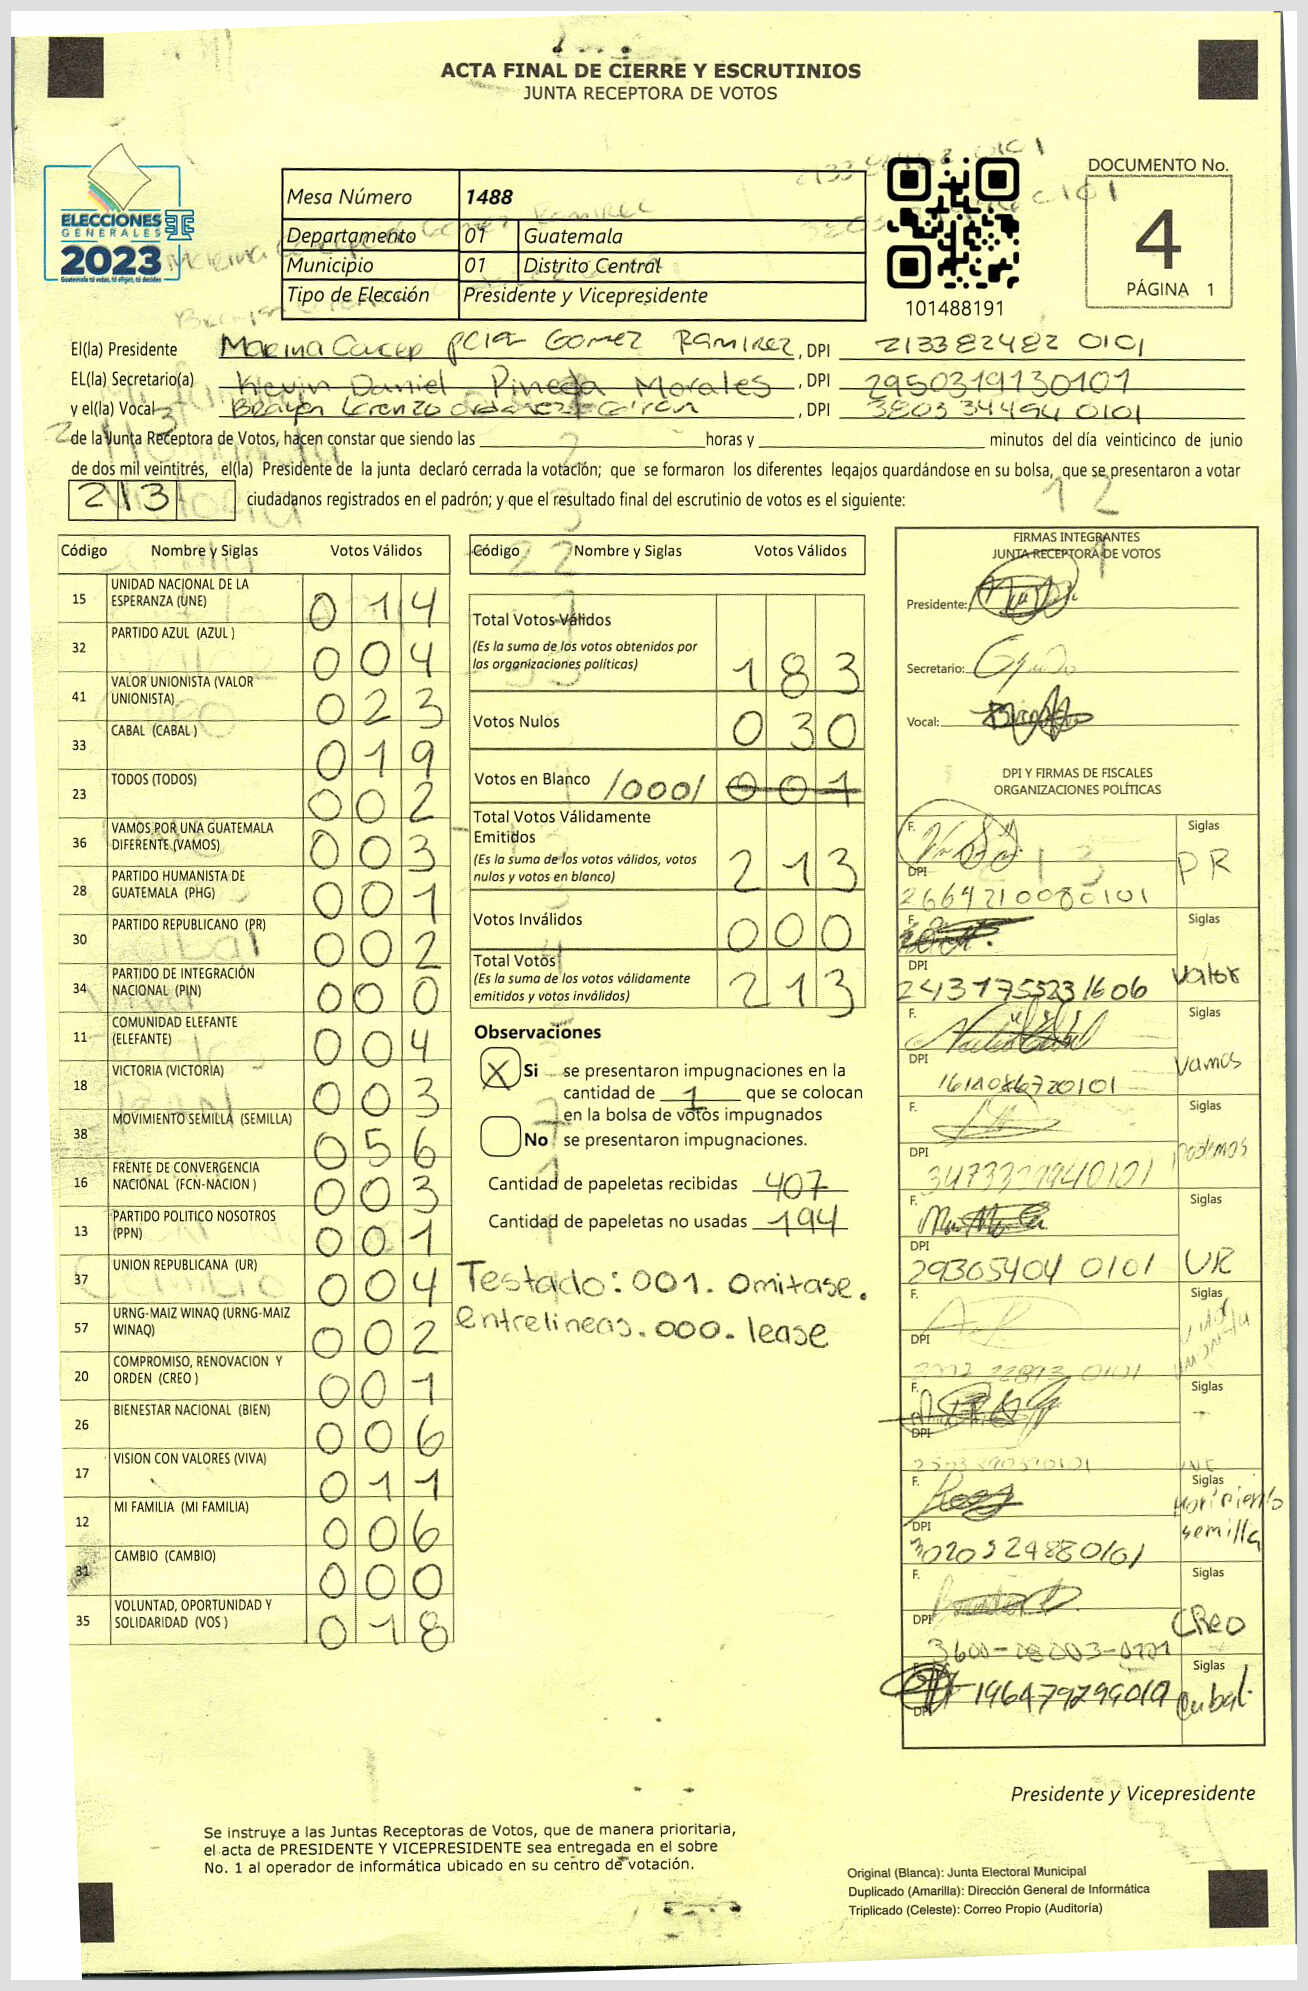 ACTA FINAL DE CIERRE Y ESCRUTINIOS
JUNTA RECEPTORA DE VOTOS
ELECCIONES
GENERALES
2023
Guatemala tú votas, tú eliges, tú decides
Mesa Número 1488
Departamento 01 Guatemala
Municipio 01 Distrito Central
Tipo de Elección Presidente y Vicepresidente
101488191
DOCUMENTO No.
4
PÁGINA 1
El(la) Presidente Marina Gomez Ramirez, DPI 213382482 0101
EL(la) Secretario(a) Kevin Daniel Pineda Morales, DPI 2950319130101
y el(la) Vocal Brayan Lorenzo, DPI 3803 34494 0101
de la Junta Receptora de Votos, hacen constar que siendo las horas y minutos del día veinticinco de junio
de dos mil veintitrés, el(la) Presidente de la junta declaró cerrada la votación; que se formaron los diferentes legajos guardándose en su bolsa, que se presentaron a votar
213 ciudadanos registrados en el padrón; y que el resultado final del escrutinio de votos es el siguiente:
Código Nombre y Siglas Votos Válidos
15 UNIDAD NACIONAL DE LA ESPERANZA (UNE) 014
32 PARTIDO AZUL (AZUL ) 004
41 VALOR UNIONISTA (VALOR UNIONISTA) 023
33 CABAL (CABAL ) 019
23 TODOS (TODOS) 002
36 VAMOS POR UNA GUATEMALA DIFERENTE (VAMOS) 003
28 PARTIDO HUMANISTA DE GUATEMALA (PHG) 001
30 PARTIDO REPUBLICANO (PR) 002
34 PARTIDO DE INTEGRACIÓN NACIONAL (PIN) 000
11 COMUNIDAD ELEFANTE (ELEFANTE) 004
18 VICTORIA (VICTORIA) 003
38 MOVIMIENTO SEMILLA (SEMILLA) 056
16 FRENTE DE CONVERGENCIA NACIONAL (FCN-NACION ) 003
13 PARTIDO POLITICO NOSOTROS (PPN) 001
37 UNION REPUBLICANA (UR) 004
57 URNG-MAIZ WINAQ (URNG-MAIZ WINAQ) 002
20 COMPROMISO, RENOVACION Y ORDEN (CREO ) 001
26 BIENESTAR NACIONAL (BIEN) 006
17 VISION CON VALORES (VIVA) 011
12 MI FAMILIA (MI FAMILIA) 006
31 CAMBIO (CAMBIO) 000
35 VOLUNTAD, OPORTUNIDAD Y SOLIDARIDAD (VOS ) 018
Código Nombre y Siglas Votos Válidos
Total Votos Válidos
(Es la suma de los votos obtenidos por
las organizaciones políticas) 183
Votos Nulos 030
Votos en Blanco /000/ 001
Total Votos Válidamente
Emitidos
(Es la suma de los votos válidos, votos
nulos y votos en blanco) 213
Votos Inválidos 000
Total Votos
(Es la suma de los votos válidamente
emitidos y votos inválidos) 213
Observaciones
X Si se presentaron impugnaciones en la
cantidad de 1 que se colocan
en la bolsa de votos impugnados
No se presentaron impugnaciones.
Cantidad de papeletas recibidas 407
Cantidad de papeletas no usadas 194
Testado: 001. Omitase.
entrelineas. 000. lease
FIRMAS INTEGRANTES
JUNTA RECEPTORA DE VOTOS
Presidente:
Secretario:
Vocal:
DPI Y FIRMAS DE FISCALES
ORGANIZACIONES POLÍTICAS
F. Siglas
DPI PR
2664210080101
F. Siglas
DPI Valor
F. Siglas
DPI Vamos
F. Siglas
DPI Podemos
F.
DPI UR
29305404 0101
F. Siglas
DPI
F. Siglas
DPI
UNE
F. Siglas
DPI Movimiento
semilla
3020524880101
F. Siglas
DPI CReo
Siglas
DPI Cabal
Presidente y Vicepresidente
Se instruye a las Juntas Receptoras de Votos, que de manera prioritaria,
el acta de PRESIDENTE Y VICEPRESIDENTE sea entregada en el sobre
No. 1 al operador de informática ubicado en su centro de votación.
Original (Blanca): Junta Electoral Municipal
Duplicado (Amarilla): Dirección General de Informática
Triplicado (Celeste): Correo Propio (Auditoría)